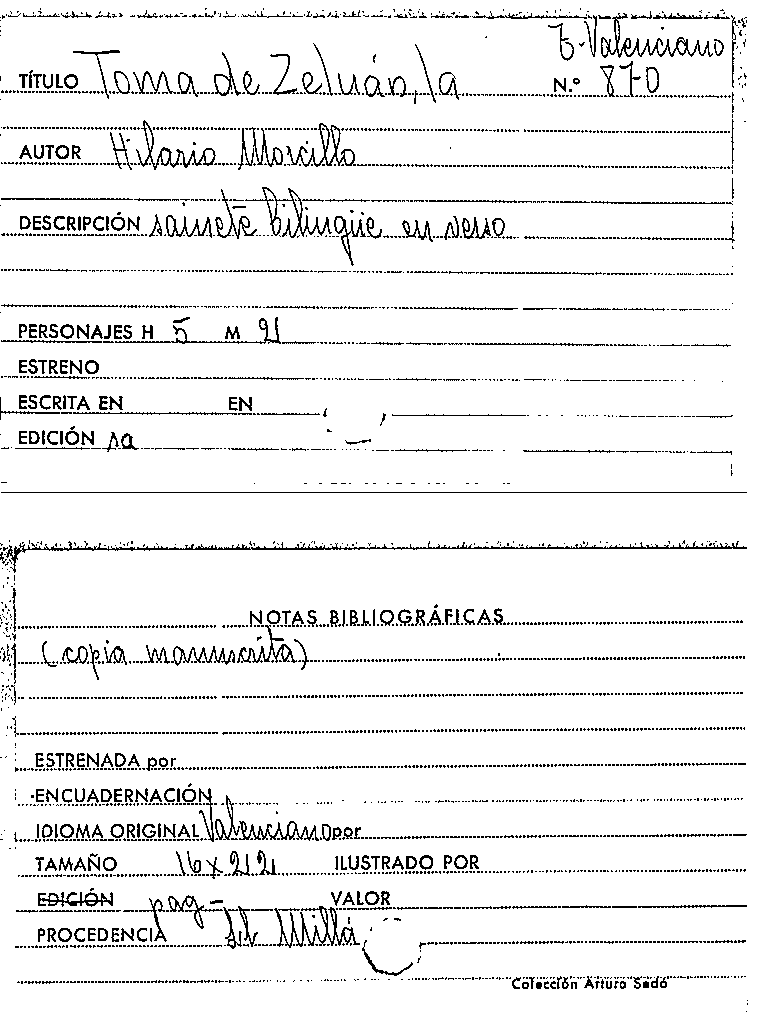 T. Valenciano
TÍTULO Toma de Zeluán, la N.º 870
AUTOR Hilario Morcillo
DESCRIPCIÓN sainete bilingüe en verso
PERSONAJES H 5 M 2
ESTRENO
ESCRITA EN EN
EDICIÓN sa
NOTAS BIBLIOGRÁFICAS
(copia manuscrita)
ESTRENADA por
ENCUADERNACIÓN
IDIOMA ORIGINAL Valenciano por
TAMAÑO 16x22 ILUSTRADO POR
EDICIÓN pag- VALOR
PROCEDENCIA Millá
Colección Arturo Sedó